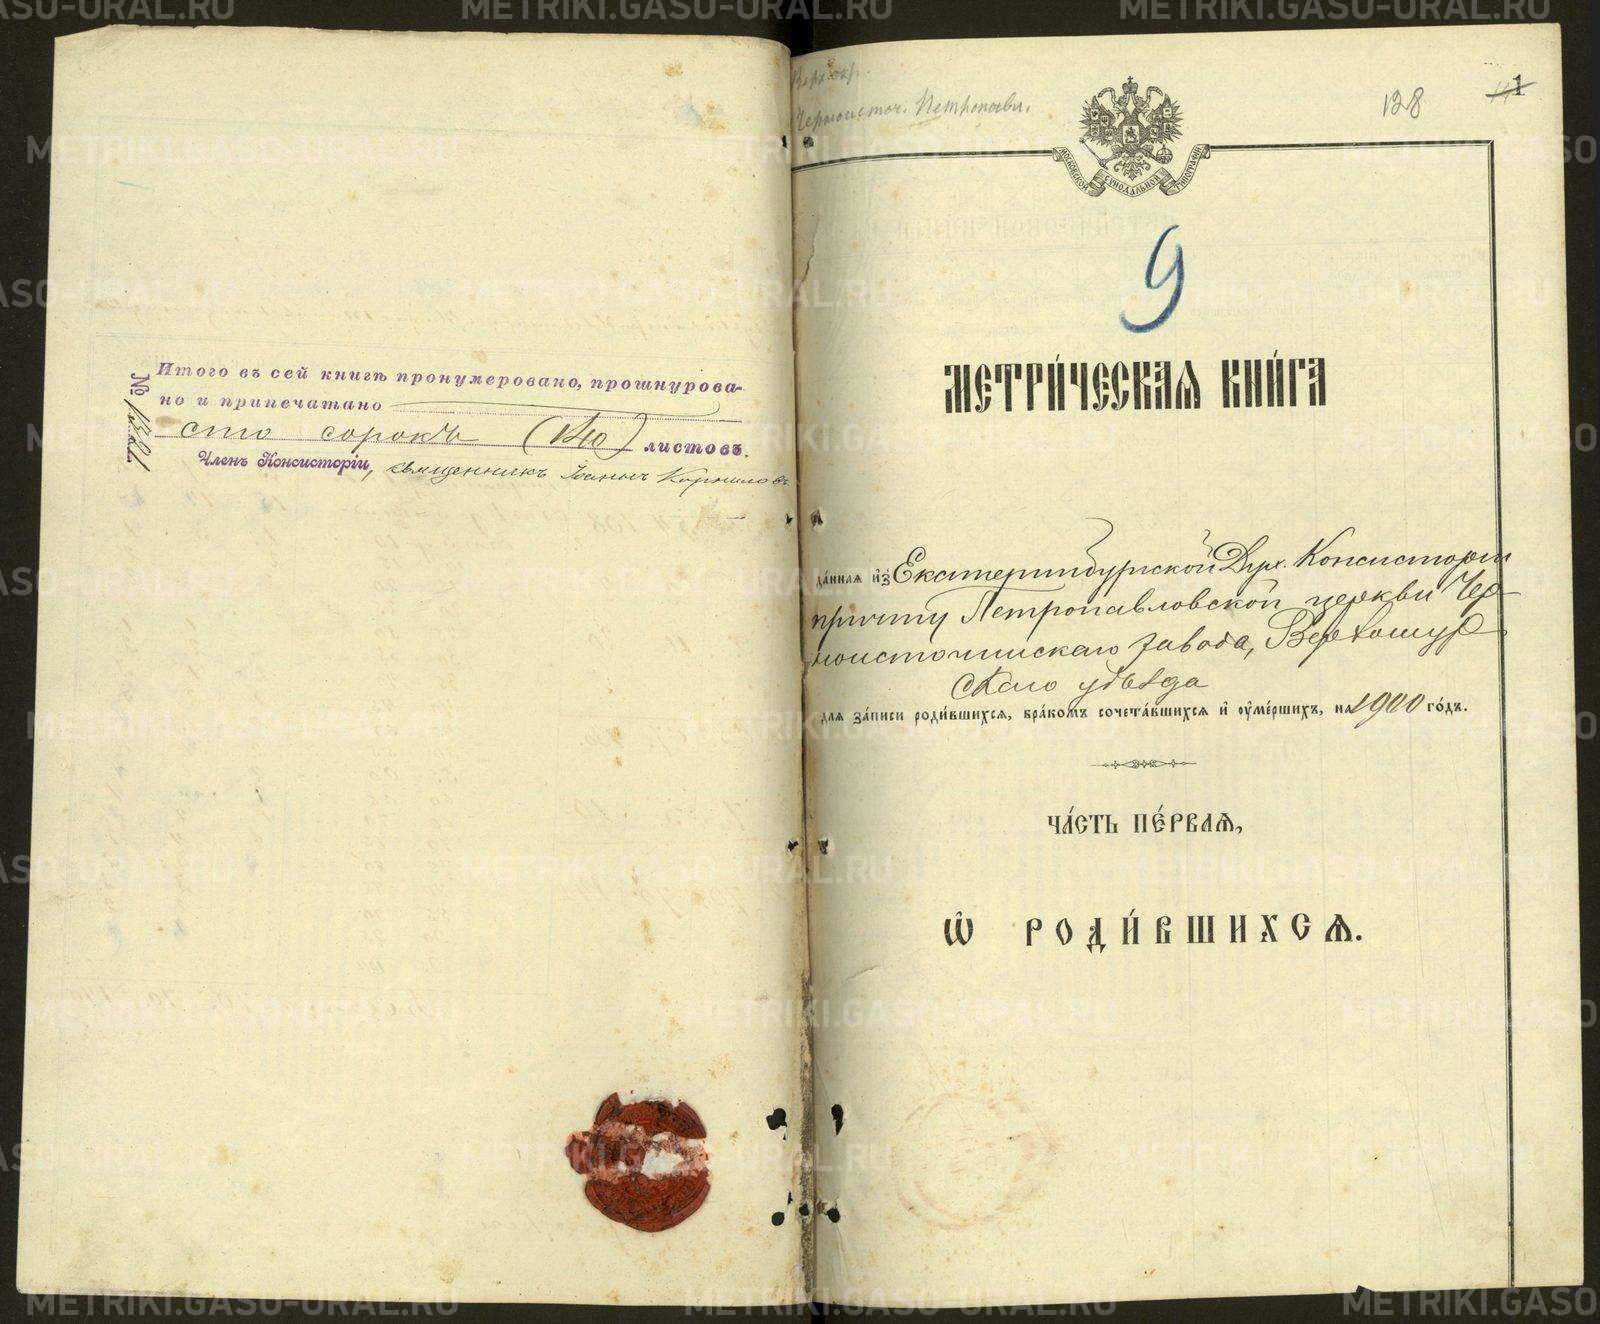 Итого въ сей книгѣ пронумеровано, прошнурова-
но и припечатано
сто сорокъ (140) листовъ.
Членъ Консисторіи, священникъ Іоаннъ Корниловъ
№
Черноисточ. Петропавл.
128
1
МОСКОВСКОЙ СѴНОДАЛЬНОЙ ТИПОГРАФІИ
9
МЕТРИ́ЧЕСКАѦ КНИ́ГА
да́ннаѧ и҆з̾ Екатеринбургской Дух. Консисторіи
причту Петропавловской церкви Чер-
ноисточинскаго завода, Верхотур
скаго уѣзда
для за́писи роди́вшихсѧ, бра́комъ сочета́вшихсѧ и҆ ᲂу҆ме́ршихъ, на 1900 го́дъ.
ЧА́СТЬ ПЕ́РВАѦ,
Ѽ РОДИ́ВШИХСѦ.
METRIKI.GASO-URAL.RU